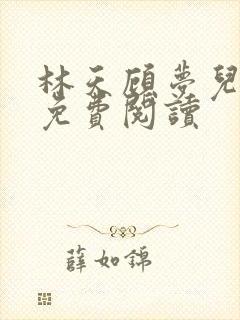 林天顾夢兒
免費閱讀
薛如錦